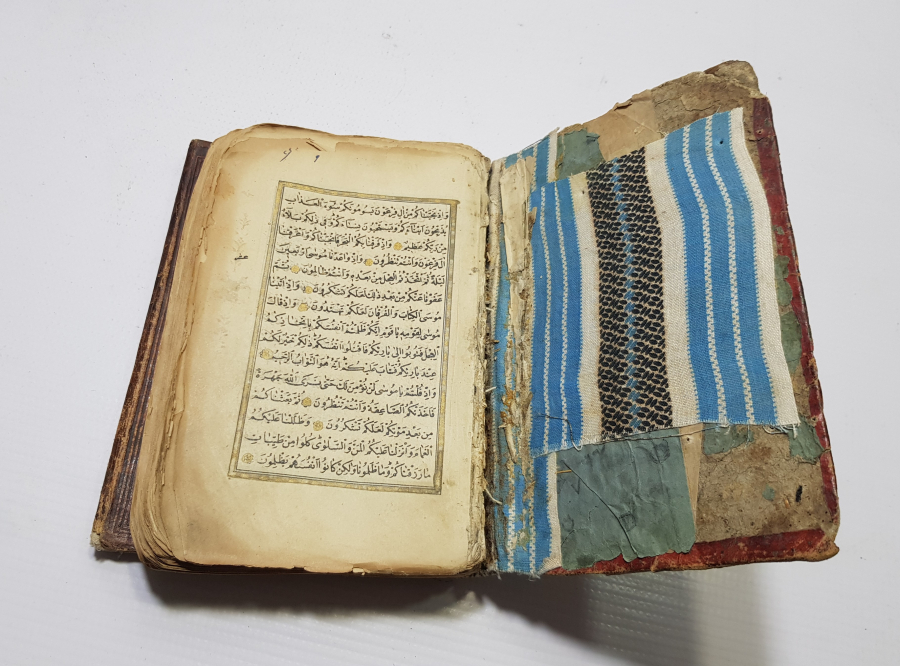 وَاِذْ نَجَّيْنَاكُمْ مِنْ اٰلِ فِرْعَوْنَ يَسُومُونَكُمْ سُوءَ الْعَذَابِ
يُذَبِّحُونَ اَبْنَاءَكُمْ وَيَسْتَحْيُونَ نِسَاءَكُمْ وَفِي ذٰلِكُمْ بَلَاءٌ
مِنْ رَبِّكُمْ عَظِيمٌ وَاِذْ فَرَقْنَا بِكُمُ الْبَحْرَ فَاَنْجَيْنَاكُمْ وَاَغْرَقْنَا
اٰلَ فِرْعَوْنَ وَاَنْتُمْ تَنْظُرُونَ وَاِذْ وَاعَدْنَا مُوسٰى اَرْبَعِينَ
لَيْلَةً ثُمَّ اتَّخَذْتُمُ الْعِجْلَ مِنْ بَعْدِهِ وَاَنْتُمْ ظَالِمُونَ ثُمَّ
عَفَوْنَا عَنْكُمْ مِنْ بَعْدِ ذٰلِكَ لَعَلَّكُمْ تَشْكُرُونَ وَاِذْ اٰتَيْنَا
مُوسَى الْكِتَابَ وَالْفُرْقَانَ لَعَلَّكُمْ تَهْتَدُونَ وَاِذْ قَالَ
مُوسٰى لِقَوْمِهِ يَا قَوْمِ اِنَّكُمْ ظَلَمْتُمْ اَنْفُسَكُمْ بِاتِّخَاذِكُمُ
الْعِجْلَ فَتُوبُوا اِلٰى بَارِئِكُمْ فَاقْتُلُوا اَنْفُسَكُمْ ذٰلِكُمْ خَيْرٌ لَكُمْ
عِنْدَ بَارِئِكُمْ فَتَابَ عَلَيْكُمْ اِنَّهُ هُوَ التَّوَّابُ الرَّحِيمُ
وَاِذْ قُلْتُمْ يَا مُوسٰى لَنْ نُؤْمِنَ لَكَ حَتّٰى نَرَى اللّٰهَ جَهْرَةً
فَاَخَذَتْكُمُ الصَّاعِقَةُ وَاَنْتُمْ تَنْظُرُونَ ثُمَّ بَعَثْنَاكُمْ
مِنْ بَعْدِ مَوْتِكُمْ لَعَلَّكُمْ تَشْكُرُونَ وَظَلَّلْنَا عَلَيْكُمُ
الْغَمَامَ وَاَنْزَلْنَا عَلَيْكُمُ الْمَنَّ وَالسَّلْوٰى كُلُوا مِنْ طَيِّبَاتِ
مَا رَزَقْنَاكُمْ وَمَا ظَلَمُونَا وَلٰكِنْ كَانُوا اَنْفُسَهُمْ يَظْلِمُونَ